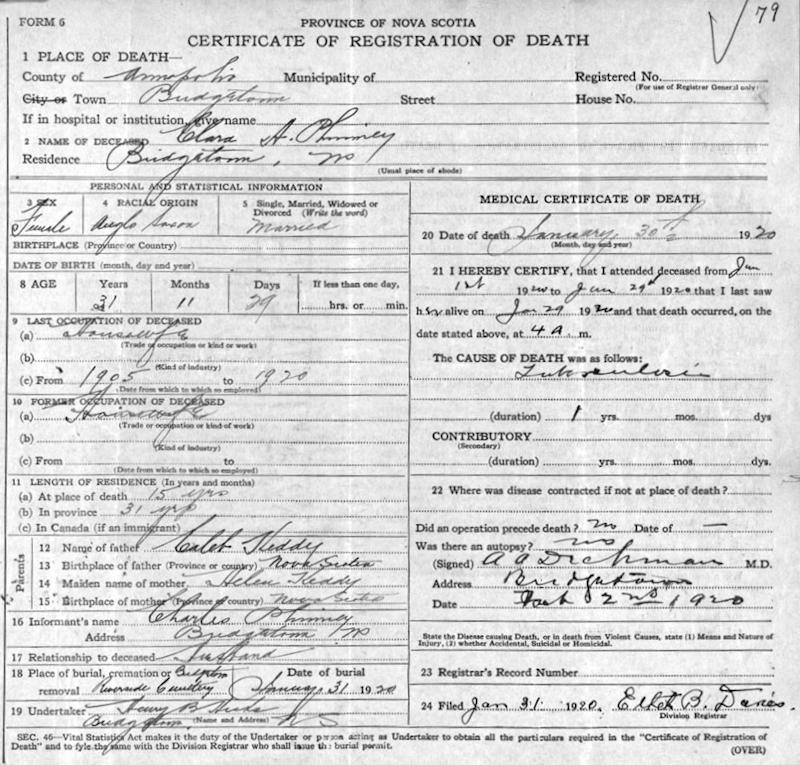 79
FORM 6
PROVINCE OF NOVA SCOTIA
CERTIFICATE OF REGISTRATION OF DEATH
1 PLACE OF DEATH—
County of Annapolis Municipality of Registered No.
(For use of Registrar General only)
City or Town Bridgetown Street House No.
If in hospital or institution, give name
2 NAME OF DECEASED Clara A. Phinney
Residence Bridgetown, NS
(Usual place of abode)
PERSONAL AND STATISTICAL INFORMATION
3 SEX 4 RACIAL ORIGIN 5 Single, Married, Widowed or Divorced (Write the word)
Female Anglo Saxon Married
BIRTHPLACE (Province or Country)
DATE OF BIRTH (month, day and year)
8 AGE Years Months Days If less than one day,
31 11 29 hrs. or min.
9 LAST OCCUPATION OF DECEASED
(a) Housewife
(Trade or occupation or kind or work)
(b)
(Kind of industry)
(c) From 1905 to 1920
(Date from which to which so employed)
10 FORMER OCCUPATION OF DECEASED
(a) Housewife
(Trade or occupation or kind of work)
(b)
(Kind of industry)
(c) From to
(Date from which to which so employed)
11 LENGTH OF RESIDENCE (In years and months)
(a) At place of death 15 yrs
(b) In province 31 yrs
(c) In Canada (if an immigrant)
Parents
12 Name of father Caleb Keddy
13 Birthplace of father (Province or country) Nova Scotia
14 Maiden name of mother Helen Keddy
15 Birthplace of mother (Province or country) Nova Scotia
16 Informant's name Charles Phinney
Address Bridgetown NS
17 Relationship to deceased Husband
18 Place of burial, cremation or removal Bridgetown Riverside Cemetery Date of burial January 31 1920
19 Undertaker Henry B Hicks
Bridgetown (Name and Address) N S
MEDICAL CERTIFICATE OF DEATH
20 Date of death January 30th 1920
(Month, day and year)
21 I HEREBY CERTIFY, that I attended deceased from Jan
1st 1920 to Jan 29th 1920 that I last saw
her alive on Jan 29 1920 and that death occurred, on the
date stated above, at 4 a. m.
The CAUSE OF DEATH was as follows:
Tuberculosis
(duration) 1 yrs. mos. dys
CONTRIBUTORY
(Secondary)
(duration) yrs. mos. dys.
22 Where was disease contracted if not at place of death?
Did an operation precede death? no Date of —
Was there an autopsy? no
(Signed) A A Dechman M.D.
Address Bridgetown
Date Feb 2nd 1920
State the Disease causing Death, or in death from Violent Causes, state (1) Means and Nature of
Injury, (2) whether Accidental, Suicidal or Homicidal.
23 Registrar's Record Number
24 Filed Jan 31 1920. B. Division Registrar
SEC. 46—Vital Statistics Act makes it the duty of the Undertaker or person acting as Undertaker to obtain all the particulars required in the "Certificate of Registration of
Death" and to fyle the same with the Division Registrar who shall issue the burial permit.
(OVER)